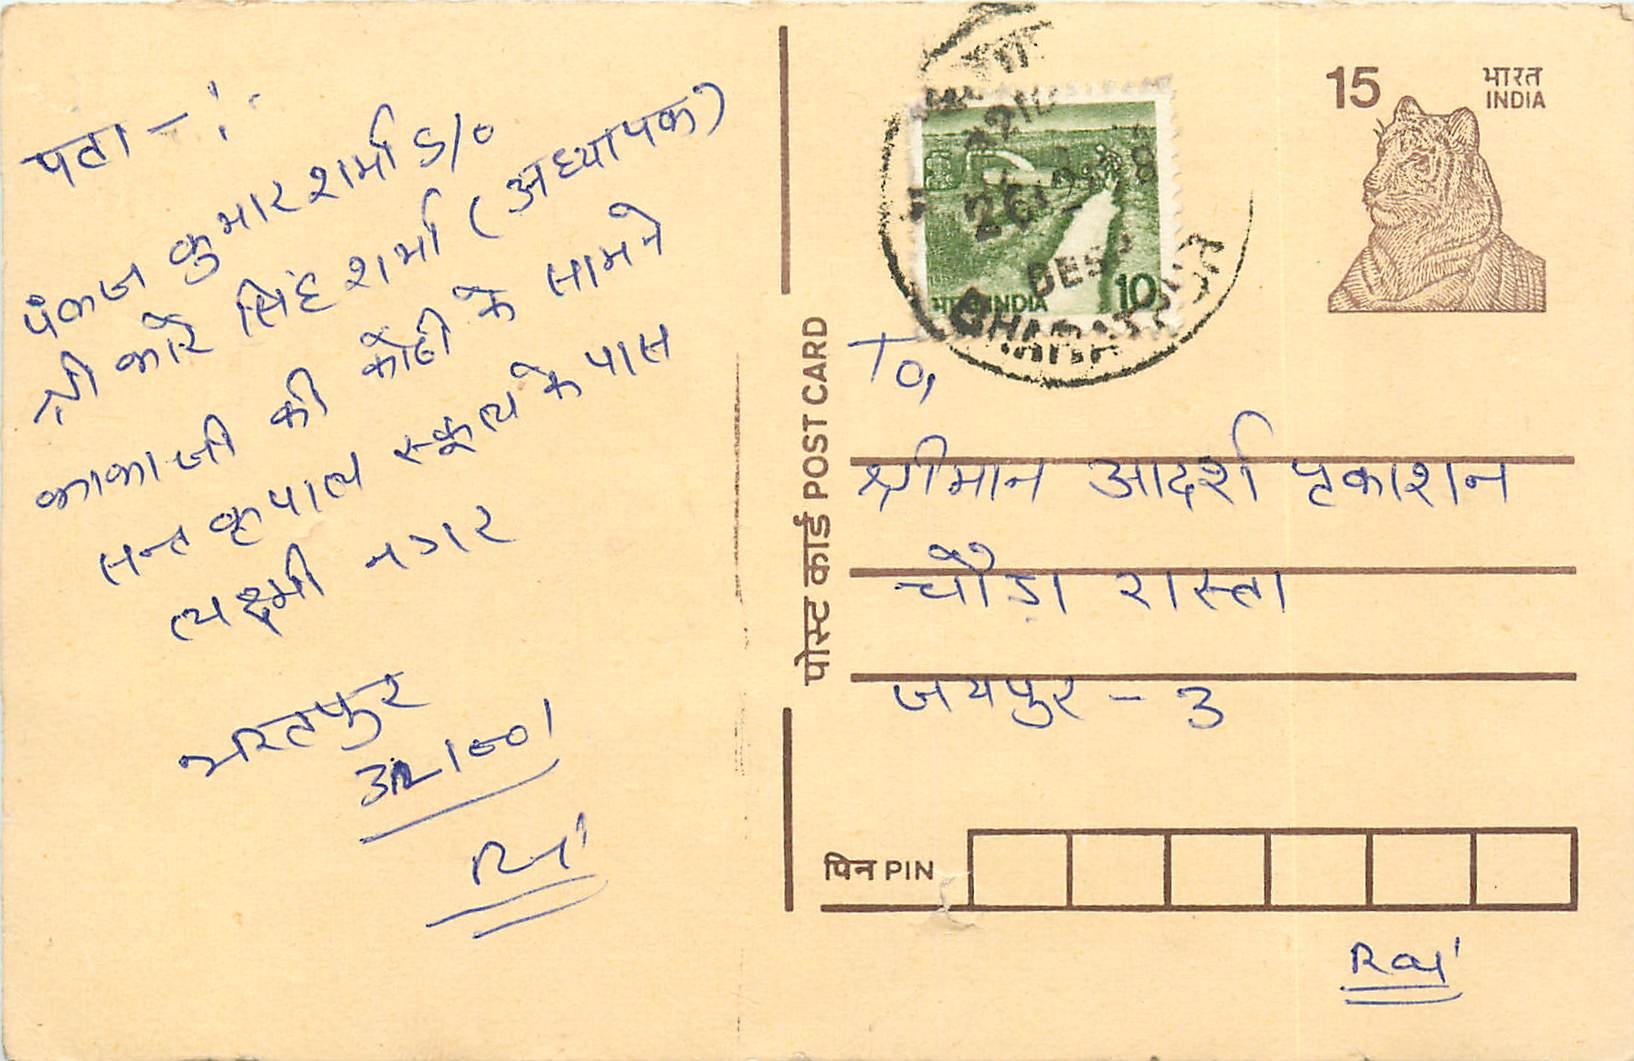 पता -:
पंकज कुमार शर्मा S/o
श्री कारे सिंह शर्मा (अध्यापक)
काकाजी की कोठी के सामने
सन्त कृपाल स्कूल के पास
लक्ष्मी नगर
भरतपुर
321001
Raj
पोस्ट कार्ड POST CARD
भारत INDIA 10
BHARATPUR
15 भारत
INDIA
To,
श्रीमान आदर्श प्रकाशन
चौड़ा रास्ता
जयपुर - 3
पिन PIN
Raj